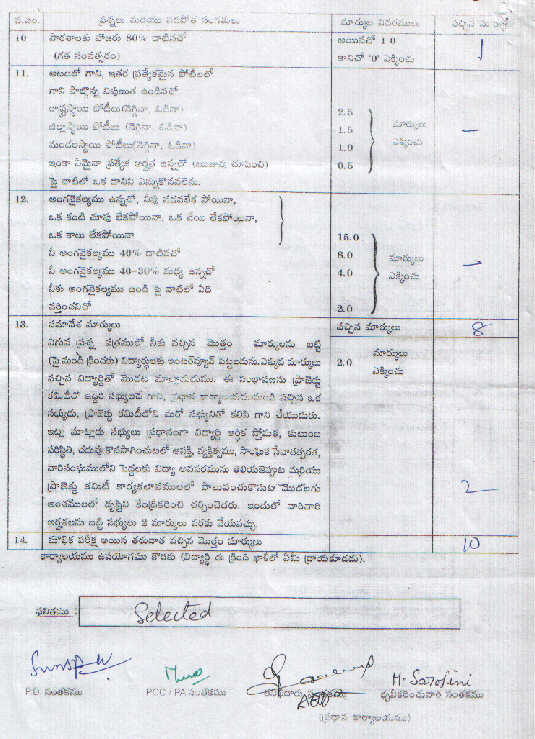 వ.సం. ప్రశ్నలు మరియు సేకరించిన సంగతులు మార్కుల వివరములు వచ్చిన
10 పాఠశాలకు హాజరు 80% దాటినచో అయినచో 1.0 1
(గత సంవత్సరం) కానిచో "0" ఎక్కించు
11. ఆటలలో గాని, ఇతర ప్రత్యేకమైన పోటీలలో
గాని పాల్గొన్న ఉండినచో
రాష్ట్రస్థాయి పోటీలు(నెగ్గినా, ఓడినా) 2.5
జిల్లాస్థాయి పోటీలు (నెగ్గినా, ఓడినా) 1.5 మార్కులు –
మండలస్థాయి పోటీలు(నెగ్గినా, ఓడినా) 1.0 ఎక్కించు
ఇంకా ఏమైనా ప్రత్యేక అర్హత ఉన్నచో (ఋజువు చూపించి) 0.5
పై వాటిలో ఒక దానిని ఎన్నుకొనవలెను.
12. అంగవైకల్యము ఉన్నచో, నీవు నడవలేక పోయినా,
ఒక కంటి చూపు లేకపోయినా, ఒక చేయి లేకపోయినా,
ఒక కాలు లేకపోయినా 15.0
నీ అంగవైకల్యము 40% దాటినచో 8.0 మార్కులు –
నీ అంగవైకల్యము 40-30% మధ్య ఉన్నచో 4.0 ఎక్కించు
నీకు అంగవైకల్యము ఉండి పై వాటిలో ఏది
వర్తించనిచో 2.0
13. సమావేశ మార్కులు వచ్చిన మార్కులు 8
ఈ ప్రశ్న పత్రములో నీకు వచ్చిన మొత్తం మార్కులను బట్టి 2.0 మార్కులు
విద్యార్థులకు ఇంటర్వ్యూవ్ మార్కులు ఎక్కించు
వచ్చిన విద్యార్థితో మొదట మాట్లాడుము. ఈ సంభాషణను ప్రాజెక్టు
కమిటీలో ఇద్దరి సభ్యులచే గాని, ప్రధాన కార్యాలయమునుండి వచ్చిన ఒక
సభ్యుడు, ప్రాజెక్టు కమిటీలోని మరో సభ్యునితో కలిసి గాని చేయుదురు.
ఇట్లు మాట్లాడు సభ్యులు ప్రధానంగా విద్యార్థి ఆర్థిక స్తోమత, కుటుంబ
పరిస్థితి, చదువు కొనసాగించుటలో ఆసక్తి, వ్యక్తిత్వము,
విద్యా అవసరమును మరియు
ప్రాజెక్టు కమిటీ కార్యకలాపములలో మొదలగు 2
అంశములలో దృష్టిని కేంద్రీకరించి చర్చించెదరు. ఇందులో వారివారి
అర్హతలను బట్టి సభ్యులు 2 మార్కులు వరకు వేయవచ్చు.
14. మౌఖిక పరీక్ష అయిన తరువాత వచ్చిన మొత్తం మార్కులు 10
కార్యాలయము ఉపయోగము కొరకు (విద్యార్థి ఈ క్రింది ఖాళీలో ఏమీ వ్రాయకూడదు).
ఫలితము : Selected
M. Sarojini
P.D. సంతకము PCC / PA సంతకము ధృవీకరించువారి సంతకము
(ప్రధాన కార్యాలయము)